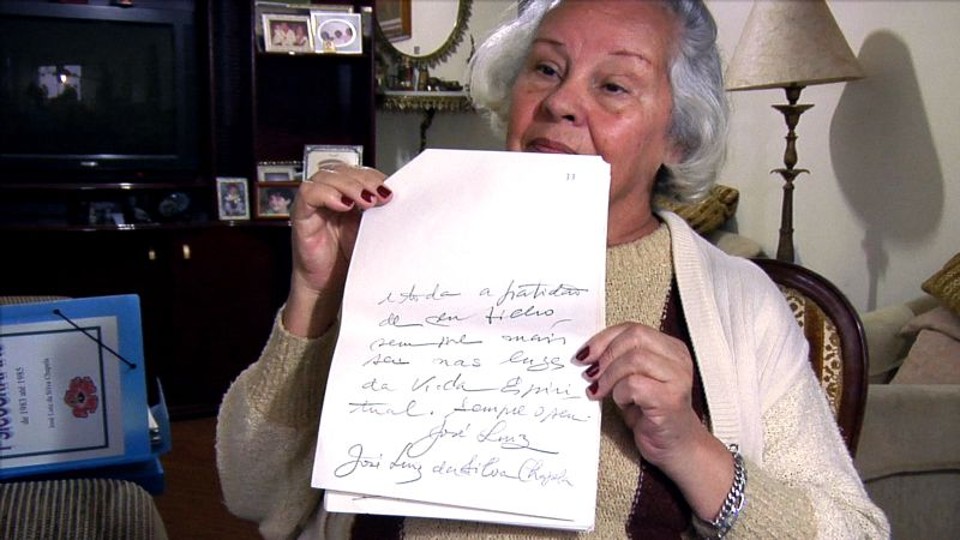 e toda a gratidão
de seu filho,
sempre mais
seu nas luzes
da Vida Espiri-
tual. Sempre o seu
José Luiz
José Luiz da Silva Chapela
de 1983 até 1985
José Luiz da Silva Chapela